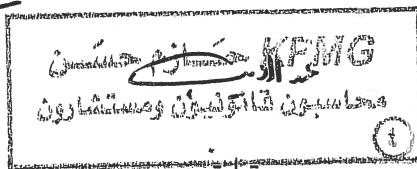 KPMG حازم حسن
محاسبون قانونيون ومستشارون
٤